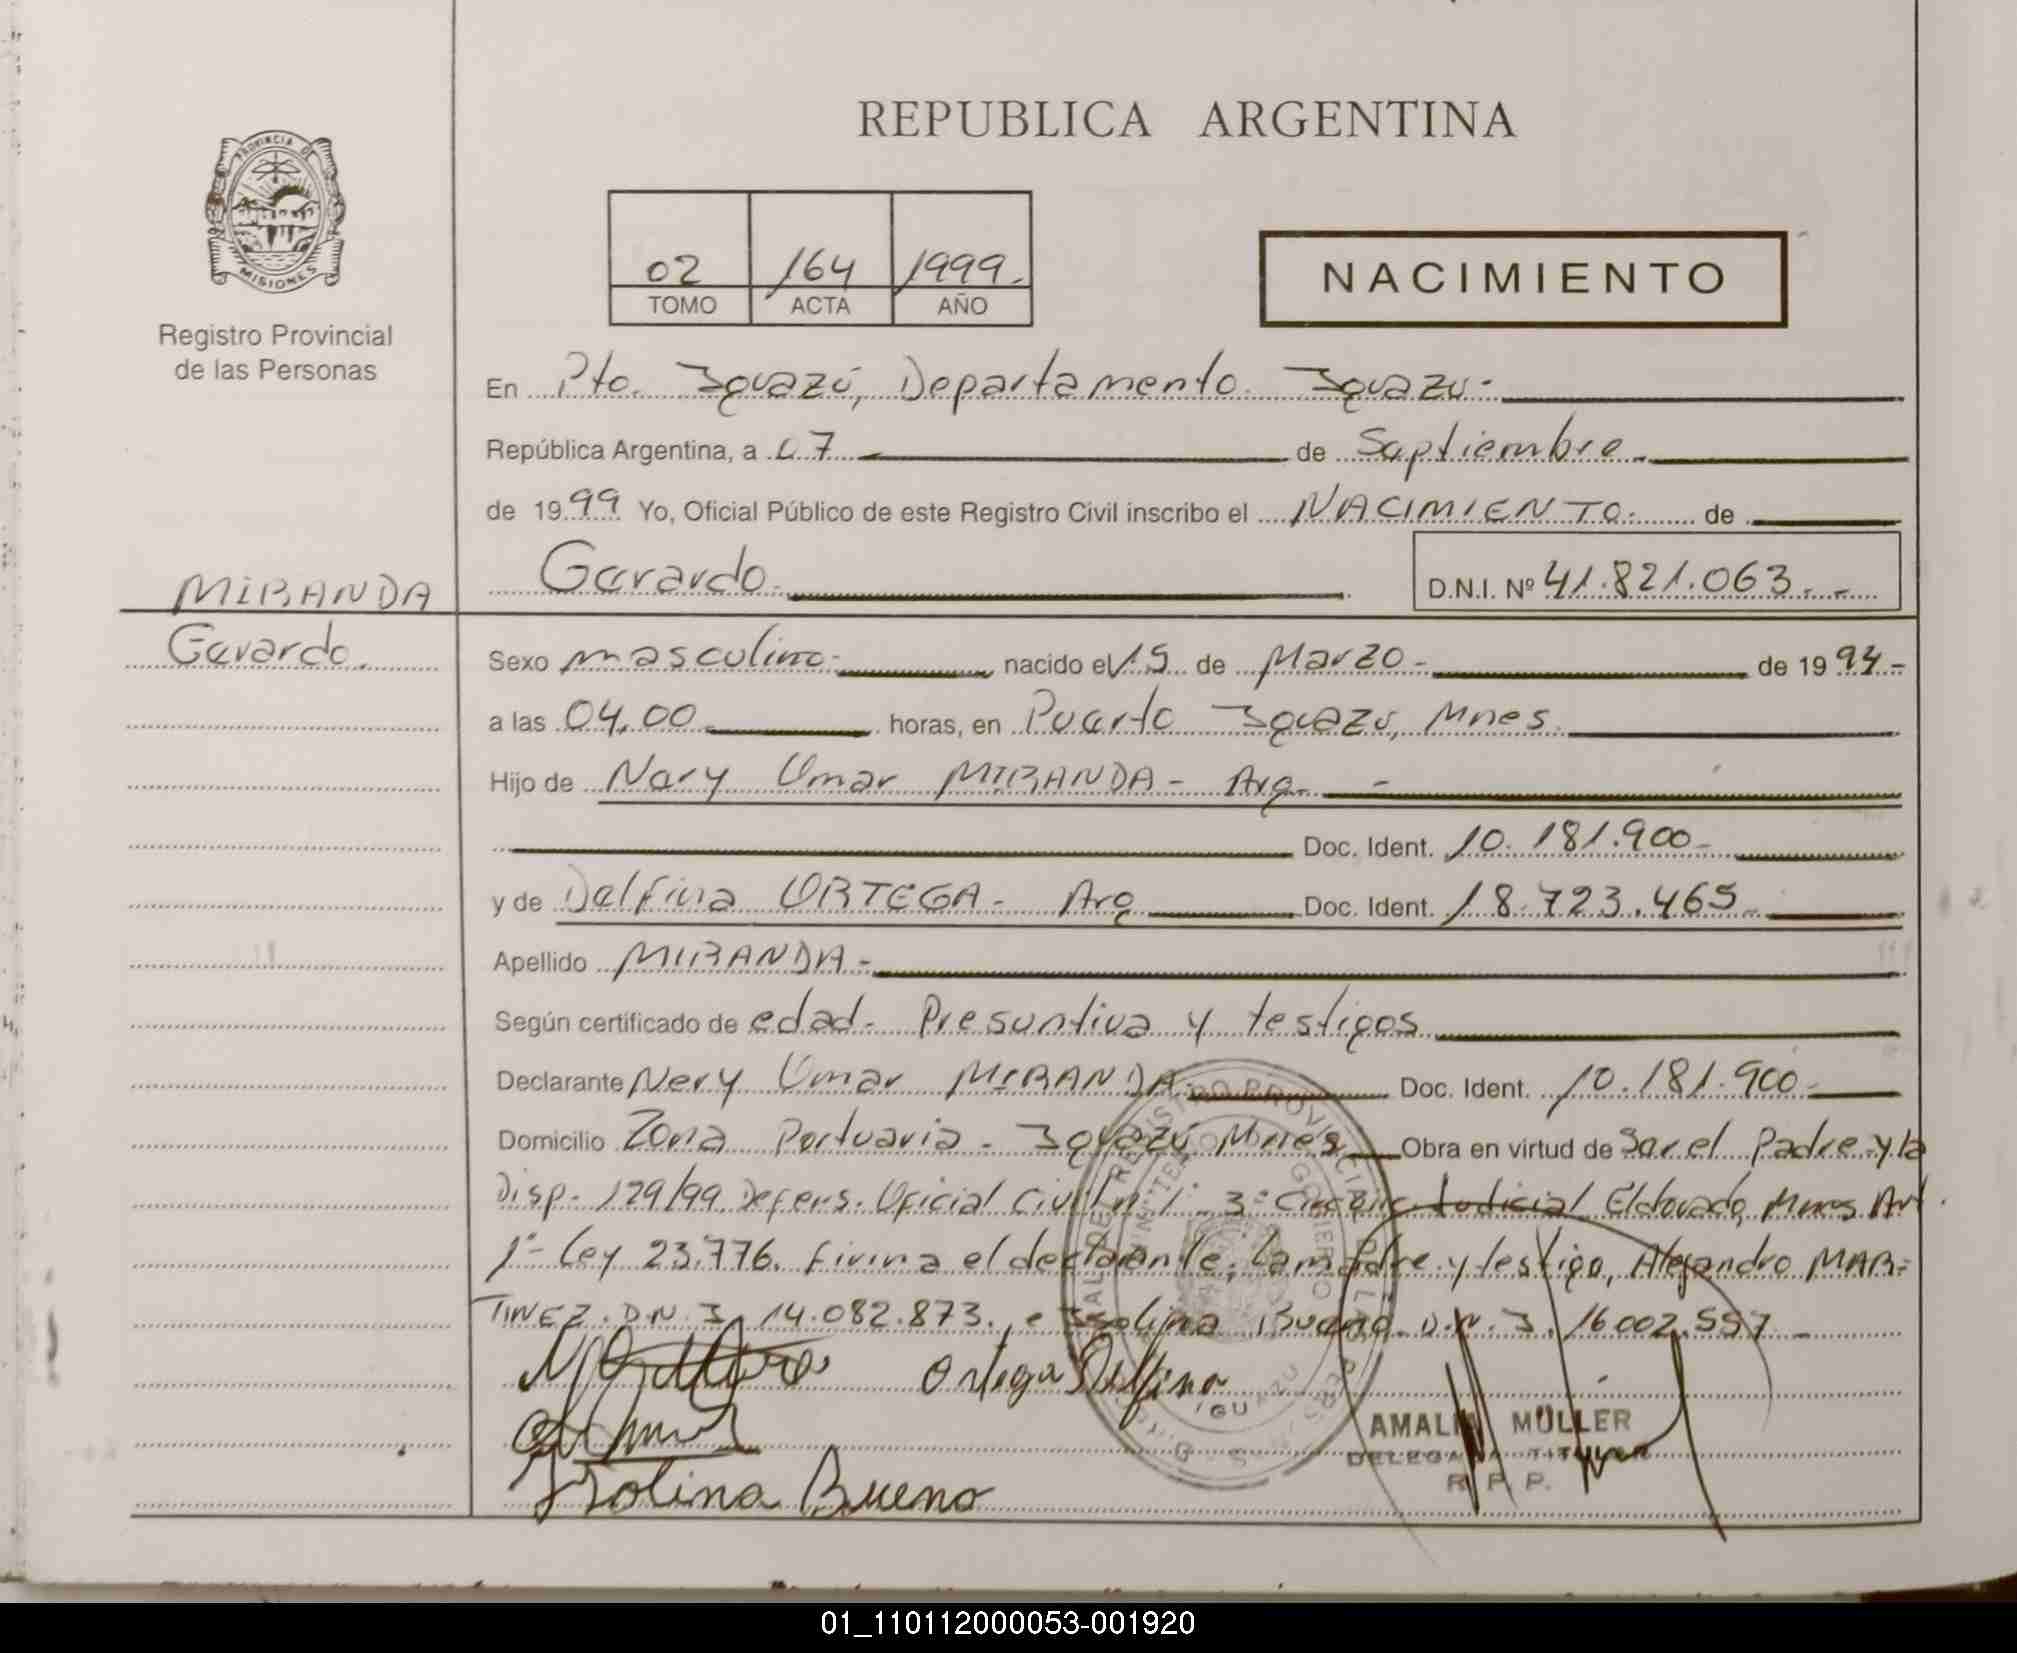 REPUBLICA ARGENTINA
PROVINCIA DE
MISIONES
Registro Provincial
de las Personas
02 164 1999.
TOMO ACTA AÑO
NACIMIENTO
En Pto. Iguazú, Departamento Iguazú.
República Argentina, a 07 de Septiembre
de 1999 Yo, Oficial Público de este Registro Civil inscribo el NACIMIENTO. de
Gerardo. D.N.I. Nº 41.821.063.-
MIRANDA
Gerardo.
Sexo masculino- nacido el 15 de Marzo- de 1994-
a las 04,00 horas, en Puerto Iguazú, Mnes.
Hijo de Nery Omar MIRANDA- Arg.-
Doc. Ident. 10.181.900-
y de Delfina ORTEGA- Arg Doc. Ident. 18.723.465-
Apellido MIRANDA-
Según certificado de edad- Presuntiva y testigos
Declarante Nery Omar MIRANDA- Doc. Ident. 10.181.900-
Domicilio Zona Portuaria- Iguazú Mnes Obra en virtud de Ser el Padre y la
Disp. 129/99 Defens. Oficial Civil Nº 1- 3º Circunc. Judicial Eldorado, Mnes Art.
1º- Ley 23.776. firma el declarante, la madre y testigo, Alejandro MAR-
TINEZ. D.N.I 14.082.873. e Isolina Bueno. D.N.I. 16002.557-
Ortega Delfina
Isolina Bueno
IGUAZU
AMALIA MULLER
DELEGADA TITULAR
R. P. P.
01_110112000053-001920